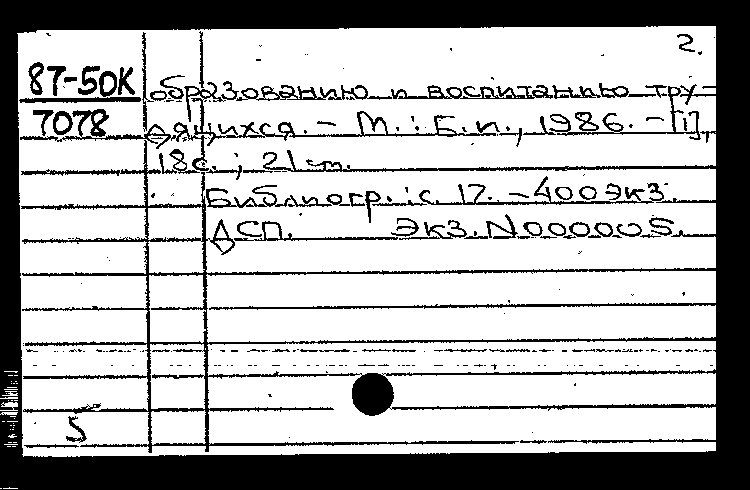 2.
87-50К образованию и воспитанию тру-
7078 дящихся. - М. : Б.и., 1986. - [1],
18с. ; 21 см.
Библиогр.: с. 17. - 400 экз.
ДСП. Экз. N 000005.
5